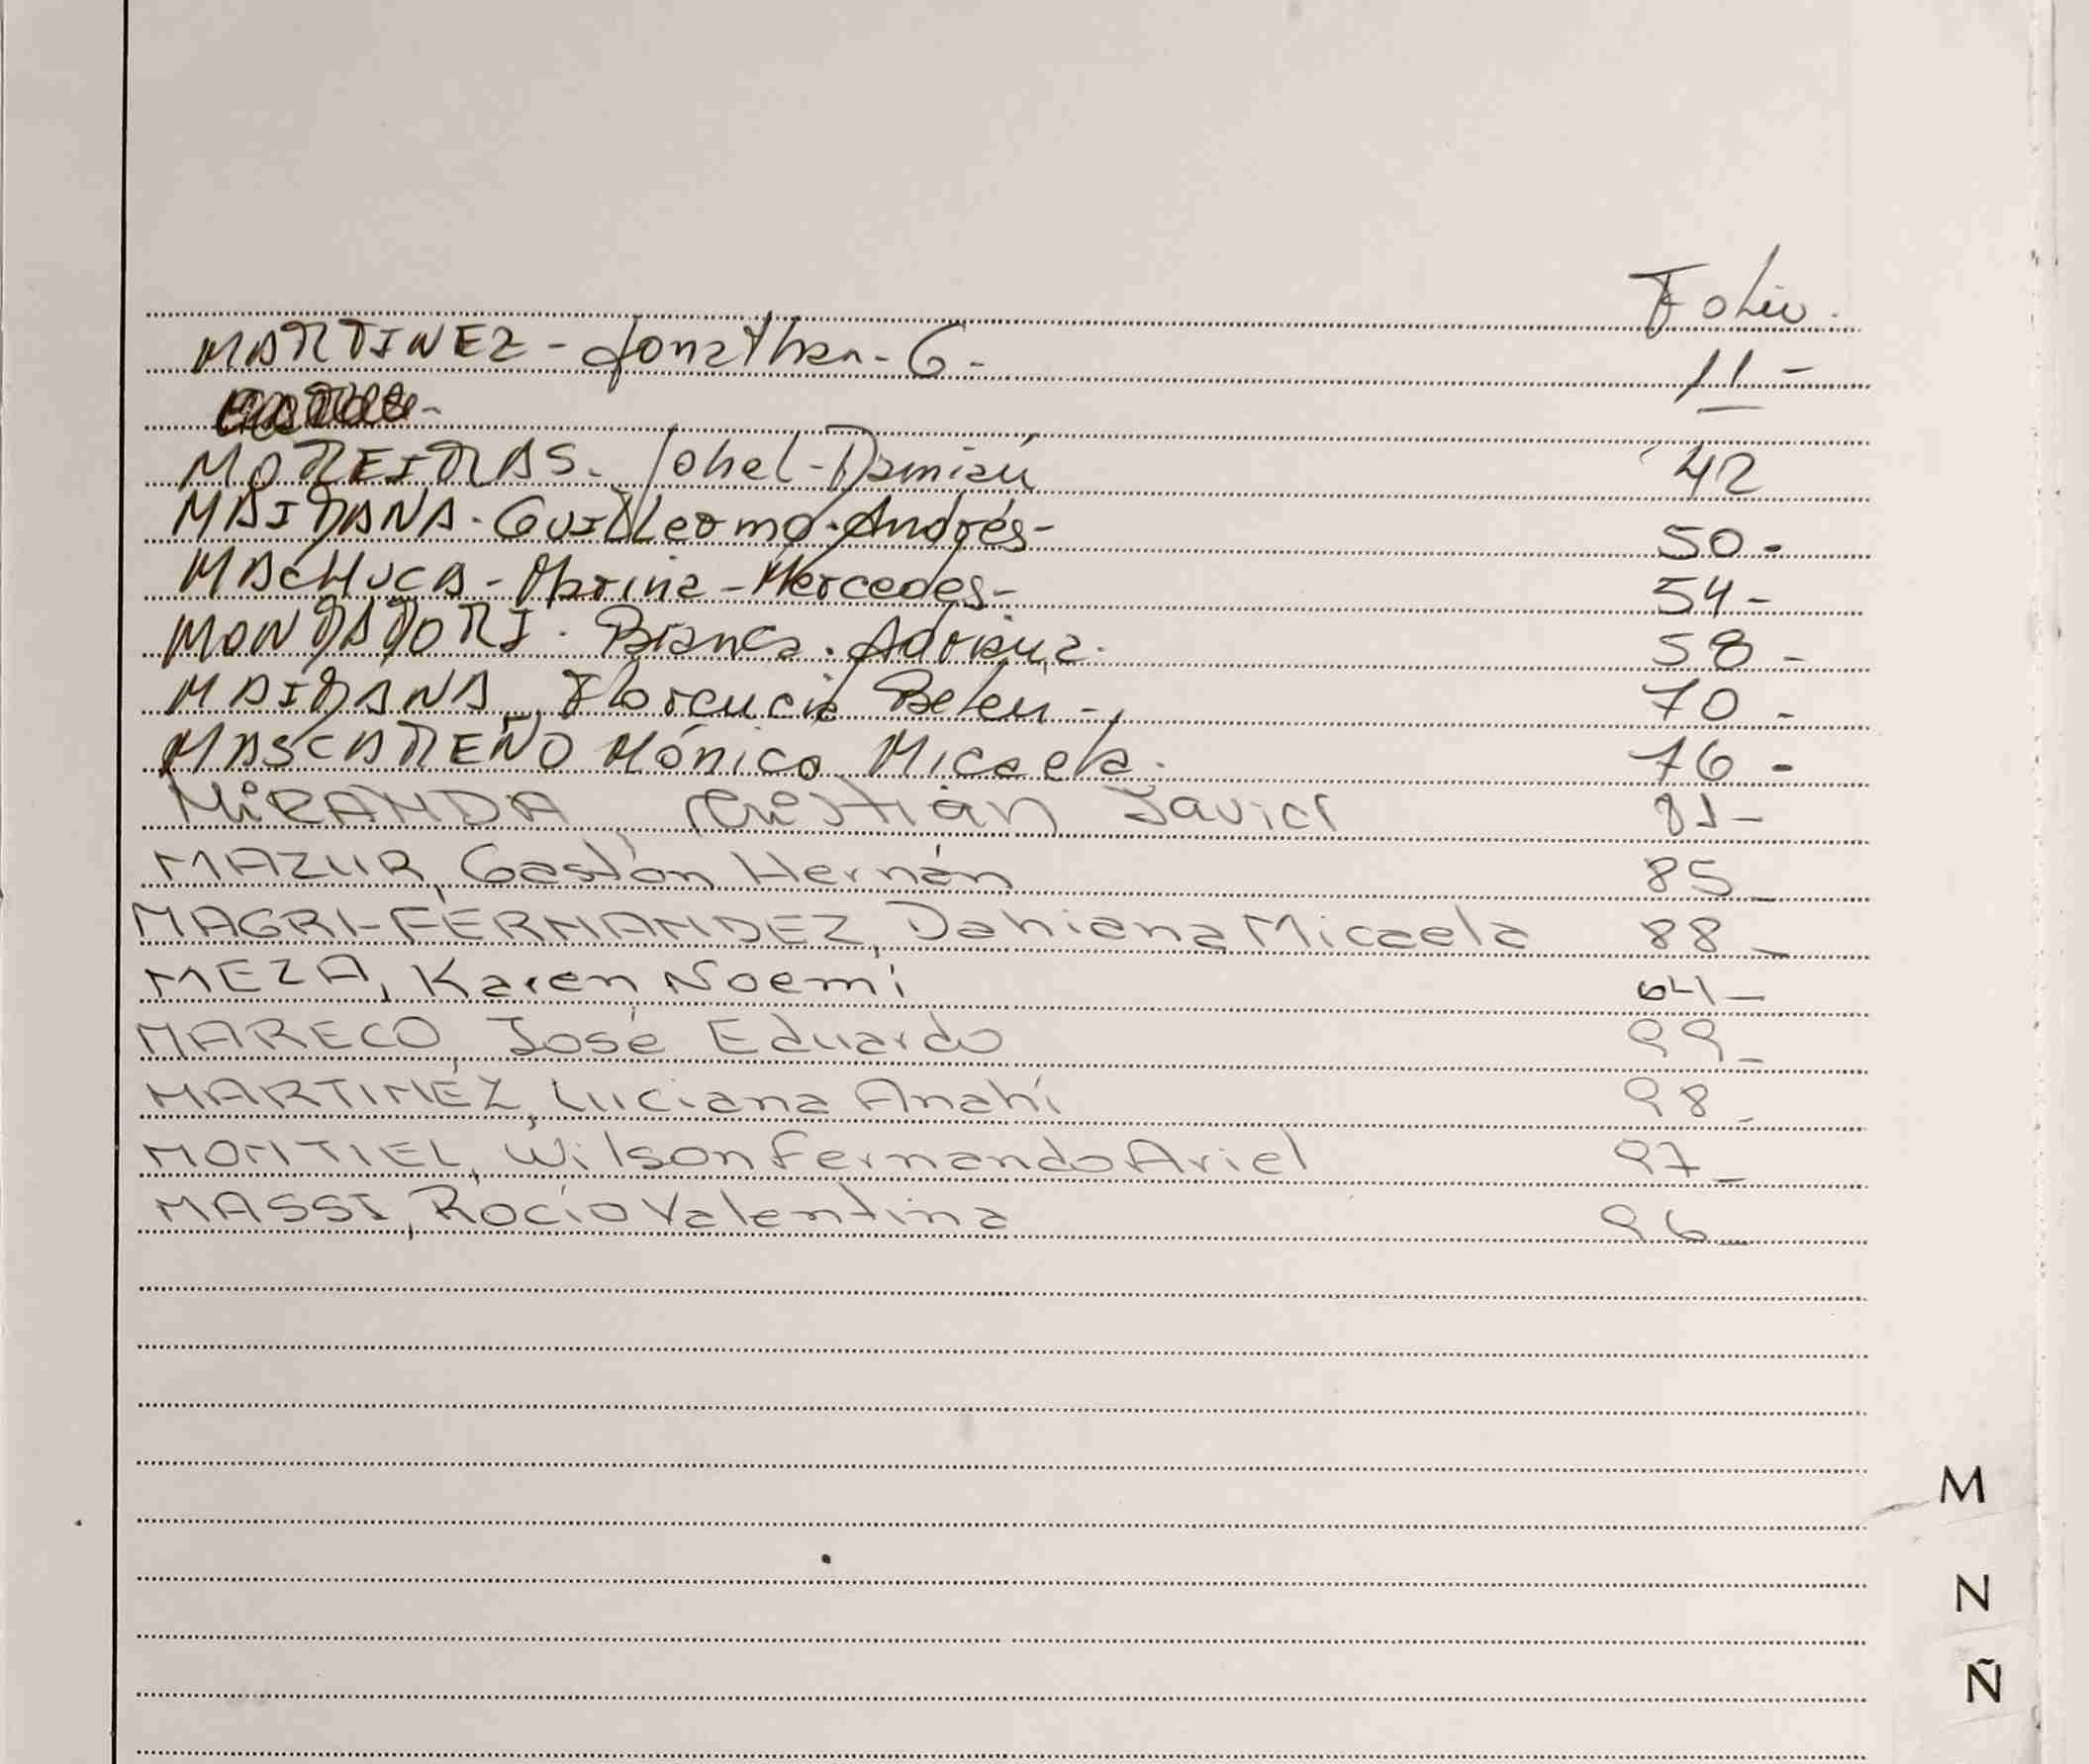 Folio.
MARTINEZ - Jonathan - G - 11 -
MOREIRAS - Johel - Damián 42
MAIDANA - Guillermo - Andrés - 50 -
MACHUCA - Marina - Mercedes - 54 -
MONDADORI - Bianca - Adriana - 58 -
MAIDANA, Florencia Belen - 70 -
MASCAREÑO Mónica Micaela - 76 -
MIRANDA Cristian Javier 81 -
MAZUR, Gastón Hernán 85 -
MAGRI-FERNANDEZ, Dahiana Micaela 88 -
MEZA, Karen Noemí 64 -
MARECO, José Eduardo 99 -
MARTINEZ, Luciana Anahí 98 -
MONTIEL, Wilson Fernando Ariel 97 -
MASSI, Rocío Valentina 96 -
M
N
Ñ